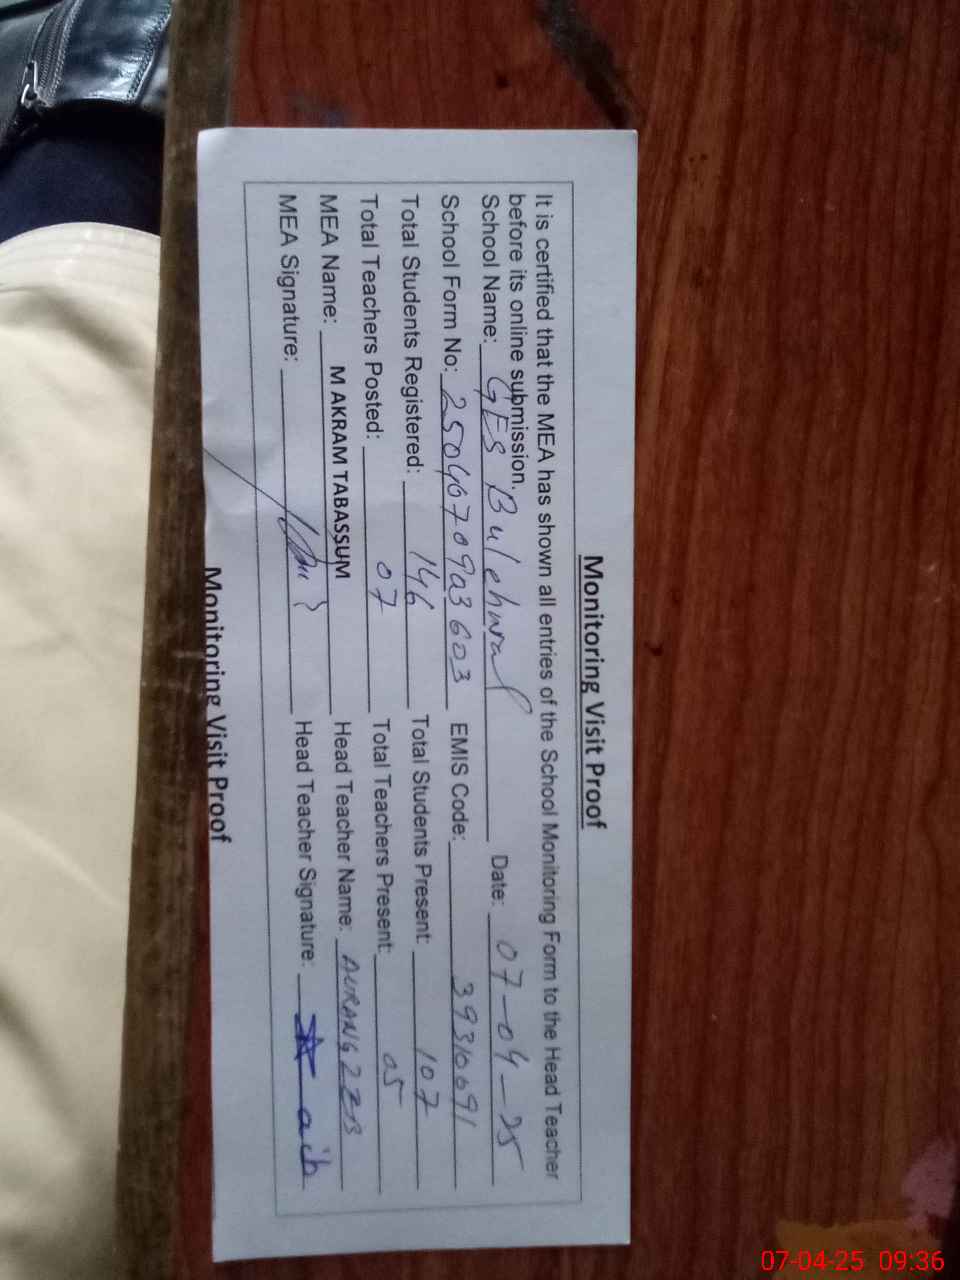 Monitoring Visit Proof
It is certified that the MEA has shown all entries of the School Monitoring Form to the Head Teacher
before its online submission.
School Name: GES Bulehwal Date: 07-04-25
School Form No: 250407093603 EMIS Code: 39310691
Total Students Registered: 146 Total Students Present: 107
Total Teachers Posted: 07 Total Teachers Present: 05
MEA Name: M AKRAM TABASSUM Head Teacher Name: AURANGZEB
MEA Signature: Head Teacher Signature:
Monitoring Visit Proof
07-04-25 09:36